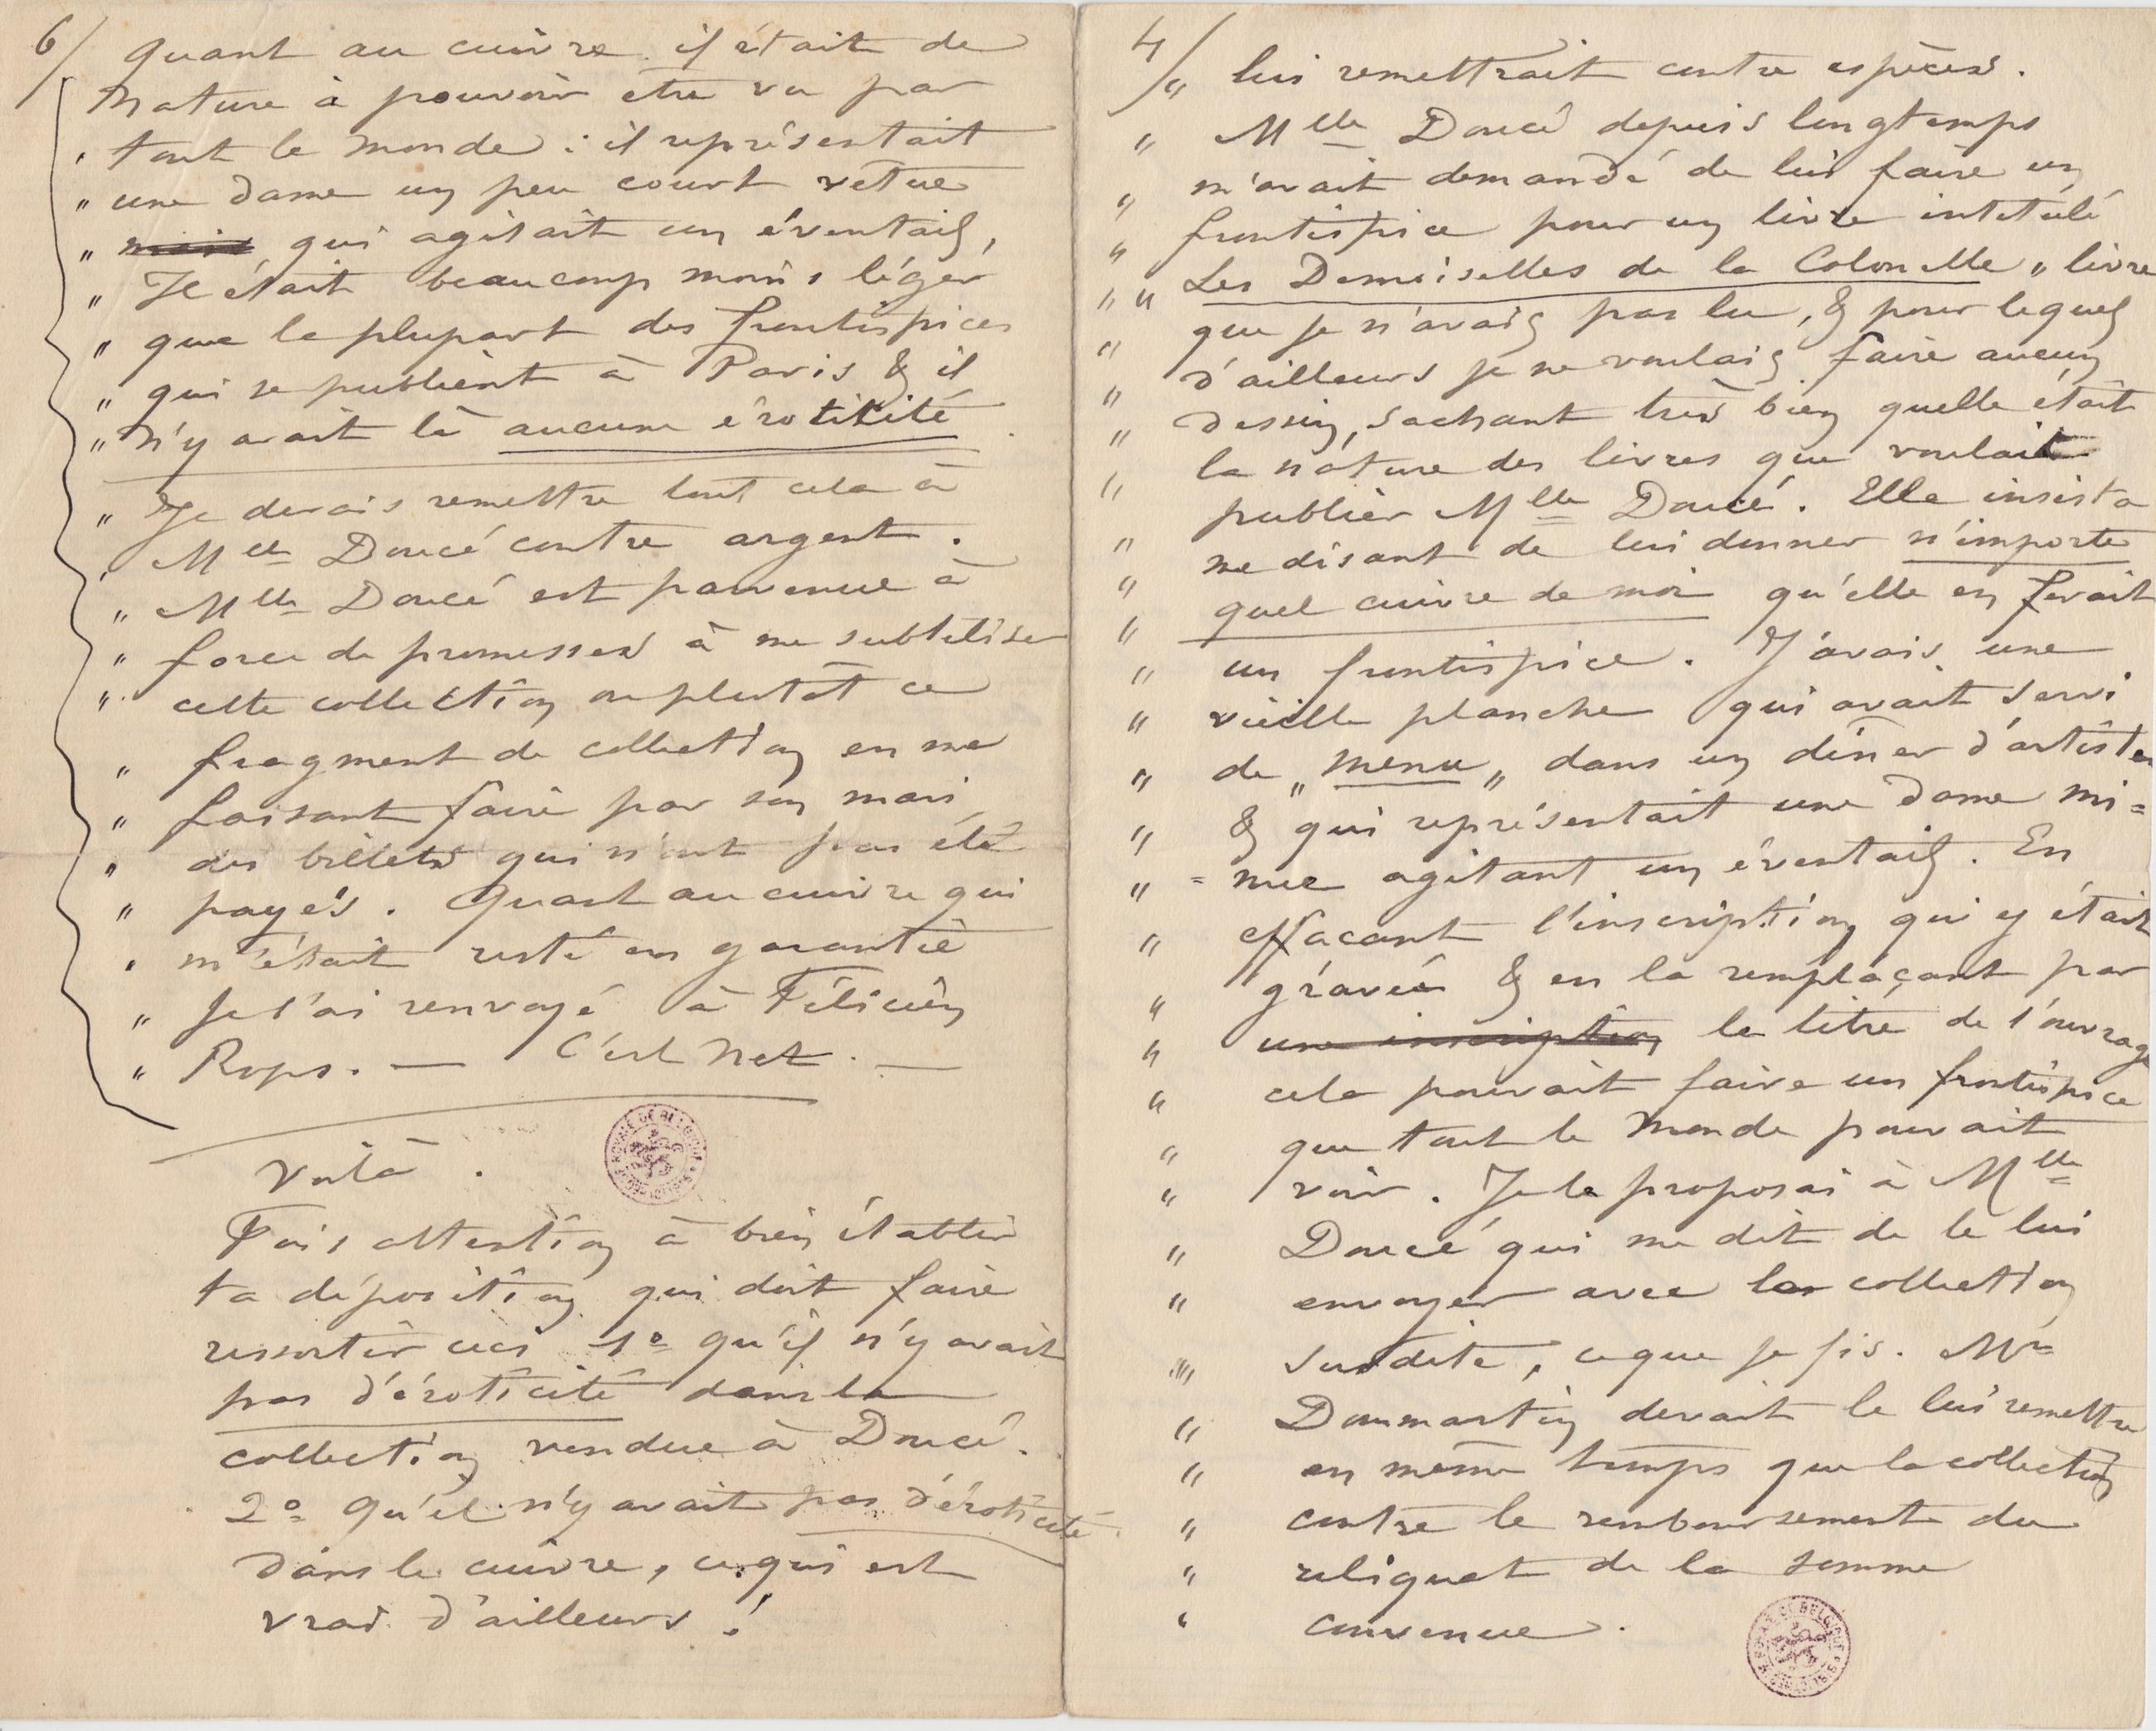 6/ Quant au cuivre il était de
nature à pouvoir etre vu par
" tout le monde : il représentait
" une dame un peu court vetue
" mais qui agitait un éventail,
" Il était beaucoup moins léger
" que la plupart des frontispices
" qui se publient à Paris & il
" n'y avait là aucune éroticité.
" Je devais remettre tout cela à
" Mlle Doucé contre argent.
" Mlle Doucé est parvenue à
" force de promesses à me subtiliser
" cette collection ou plutôt ce
" fragment de collection en me
" faisant faire par son mari
" des billets qui n'ont pas été
" payés. Quant au cuivre qui
" m'était resté en garantie
" Je l'ai renvoyé à Félicien
" Rops. — C'est net. —
Voilà.
Fais attention à bien établir
ta déposition qui doit faire
ressortir ceci 1o qu'il n'y avait
pas d'éroticité dans la
collection vendue à Doucé.
2o Qu'il n'y avait pas d'éroticité
dans le cuivre, ce qui est
vrai d'ailleurs !
4/ " lui remettrait contre espèces.
" Mlle Doucé depuis longtemps
" m'avait demandé de lui faire un
" frontispice pour un livre intitulé
" " Les Demoiselles de la Colonelle " livre
" que je n'avais pas lu, & pour lequel
" d'ailleurs je ne voulais faire aucun
" dessin, sachant très bien quelle était
" la nature des livres que voulait
" publier Mlle Doucé. Elle insista
" me disant de lui donner n'importe
" quel cuivre de moi qu'elle en ferait
" un frontispice. J'avais une
" vieille planche qui avait servi
" de " menu " dans un dîner d'artistes
" & qui représentait une dame mi=
" =nue agitant un éventail. En
" effaçant l'inscription qui y était
" gravée & en la remplaçant par
" une inscription le titre de l'ouvrage
" cela pouvait faire un frontispice
" que tout le monde pouvait
" voir. Je le proposai à Mlle
" Doucé qui me dit de le lui
" envoyer avec la collection
" susdite, ce que je fis. Mr
" Dommartin devait le lui remettre
" en même temps que la collection
" contre le remboursement du
" reliquat de la somme
" convenue.